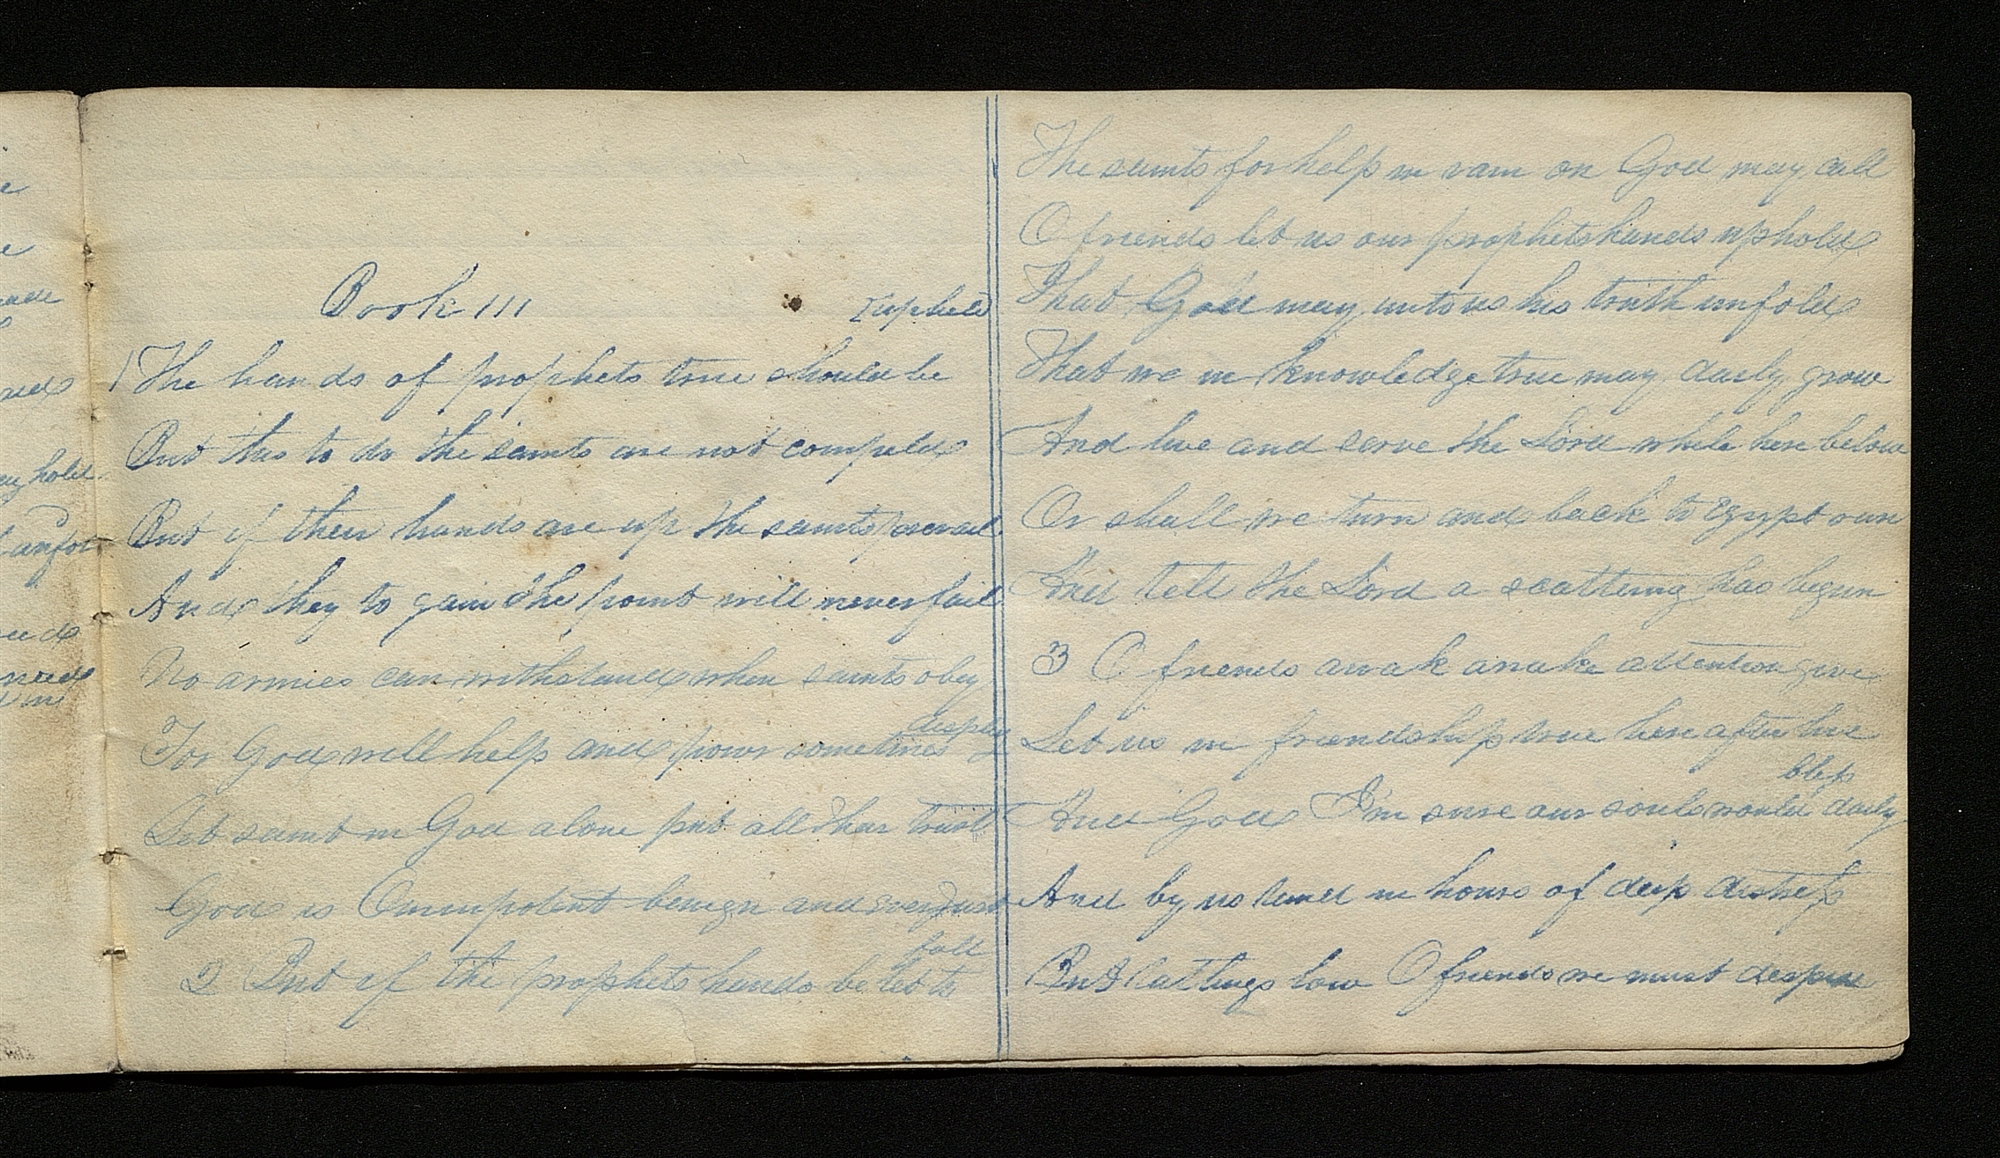 Book III
upheld
1 The hands of prophets true should be
But this to do the saints are not compeld
But if their hands are up the saints prevail
And they to gain the point will never fail
No armies can withstand when saints obey
For God will help and power sometimes
display
Let saint in God alone put all thier trust
God is Omnipotent benign and ever just
2 But if the prophets hands be let to
fall
The saints for help in vain on God may call
O friends let us our prophets hands uphold
That God may unto us his truth unfold
That we in knowledge true may daily grow
And live and serve the Lord while here below
Or shall we turn and back to Egypt run
And tell the Lord a scattering has begun
3 O friends awak awake attention give
Let us in friendship true hereafter live
And God I'm sure our souls would daily
bless
And by us stand in hours of deep distress
But all things low O friends we must despise
e
e
hold
unfo